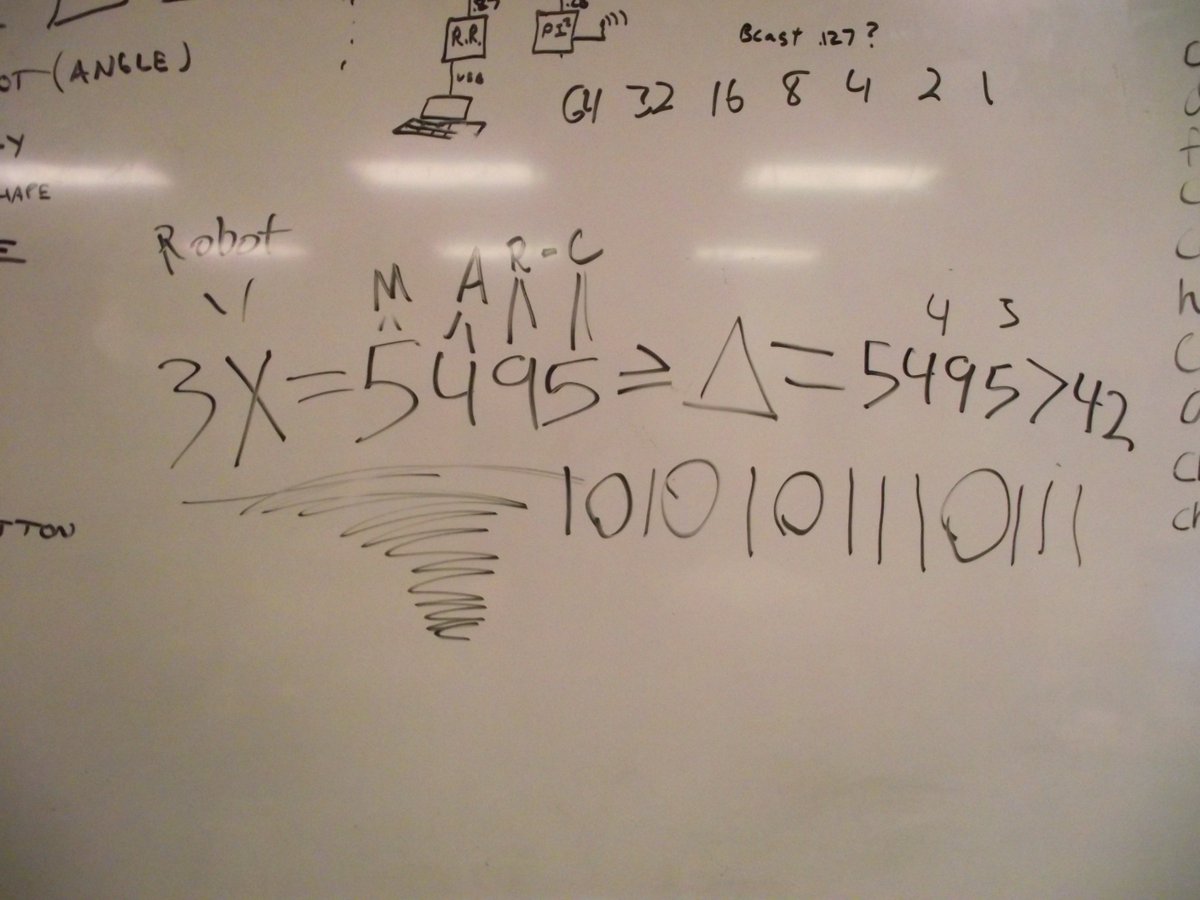 R.R.
PI²
Bcast .127?
OT-(ANGLE)
USB
64 32 16 8 4 2 1
Robot
M A R-C
4 5
3X=5495≥Δ=5495>42
1010101110111
TTON